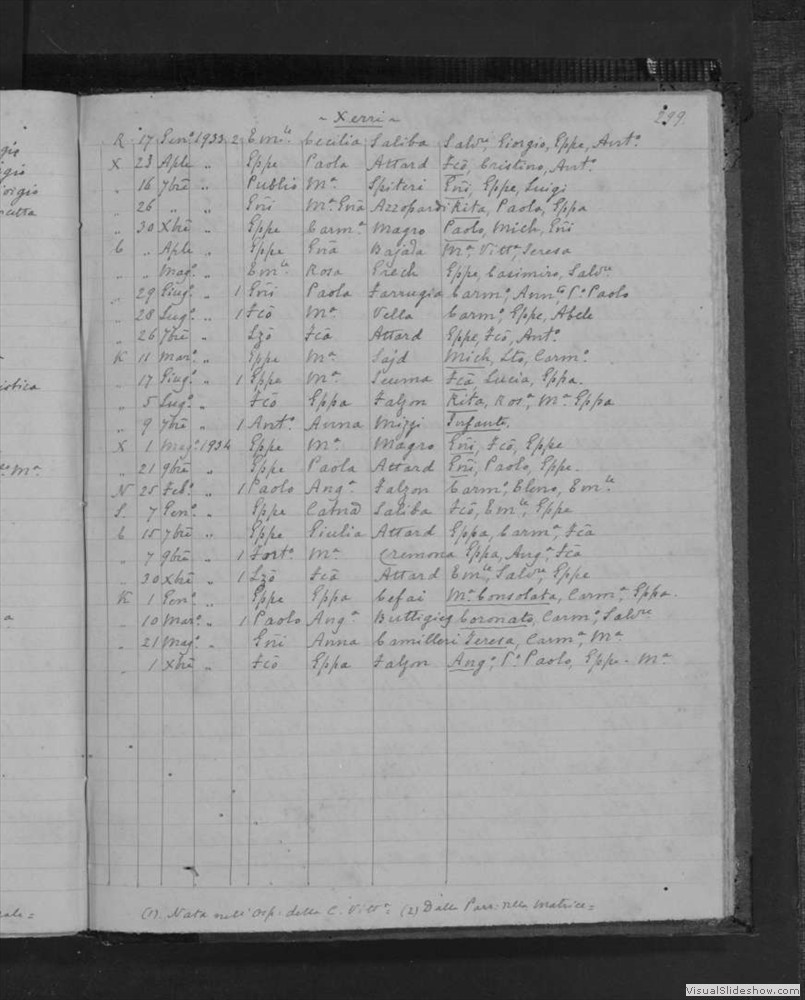 ~ Xerri ~
299.
R 17 Gen.º 1933 2 Em.le Cecilia Saliba Salv.re, Giorgio, Eppe, Ant.º
X 23 Aple " Eppe Paola Attard Fcõ, Cristino, Ant.º
" 16 7bre " Publio M.a Spiteri Gñi, Eppe, Luigi
" 26 " " Gñi M.a Gnã Azzopardi Rita, Paola, Eppa
" 30 Xbre " Eppe Carm.a Magro Paolo, Mich, Gñi
C " Aple " Eppe Gnã Bajada M.a, Vitt.a, Teresa
" " Mag.º " Em.le Rosa Grech Eppe, Casimiro, Salv.re
" 29 Giug.º " 1 Gñi Paola Farrugia Carm.º, Ann.º P.º Paolo
" 28 Lug.º " 1 Fcõ M.a Vella Carm.º, Eppe, Abele
" 26 7bre " Lzõ Fcã Attard Eppe, Fcõ, Ant.º
K 11 Mar.º " Eppe M.a Sajd Mich, Lto, Carm.º
" 17 Giug.º " 1 Eppe M.a Scerma Fcã, Lucia, Eppa.
" 5 Lug.º " Fcõ Eppa Falzon Rita, Ros.a, M.a Eppa
" 9 7bre " 1 Ant.º Anna Mizzi Infante.
X 1 Mag.º 1934 Eppe M.a Magro Gñi, Fcõ, Eppe
" 21 9bre " Eppe Paola Attard Gñi, Paolo, Eppe.
N 25 Feb.º " 1 Paolo Ang.a Falzon Carm.º, Eleno, Em.le
S. 7 Gen.º " Eppe Catnã Saliba Fcõ, Em.le, Eppe
C 15 7bre " Eppe Giulia Attard Eppa, Carm.a, Fcã
" 7 9bre " 1 Fort.º M.a Cremona Eppa, Ang.a, Fcã
" 30 Xbre " 1 Lzõ Fcã Attard Em.le, Salv.re, Eppe
K 1 Gen.º " Eppe Eppa Cefai M.a Consolata, Carm.a, Eppa.
" 10 Mar.º " 1 Paolo Ang.a Buttigieg Coronato, Carm.º, Salv.re
" 21 Mag.º " Gñi Anna Camilleri Teresa, Carm.a, M.a
" 1 Xbre " Fcõ Eppa Falzon Ang.º, P.º Paolo, Eppe - M.a
(1). Nata nell' Osp. della C. Vitt.a = (2) Dalla Parr. nella Matrice =
VisualSlideshow.com